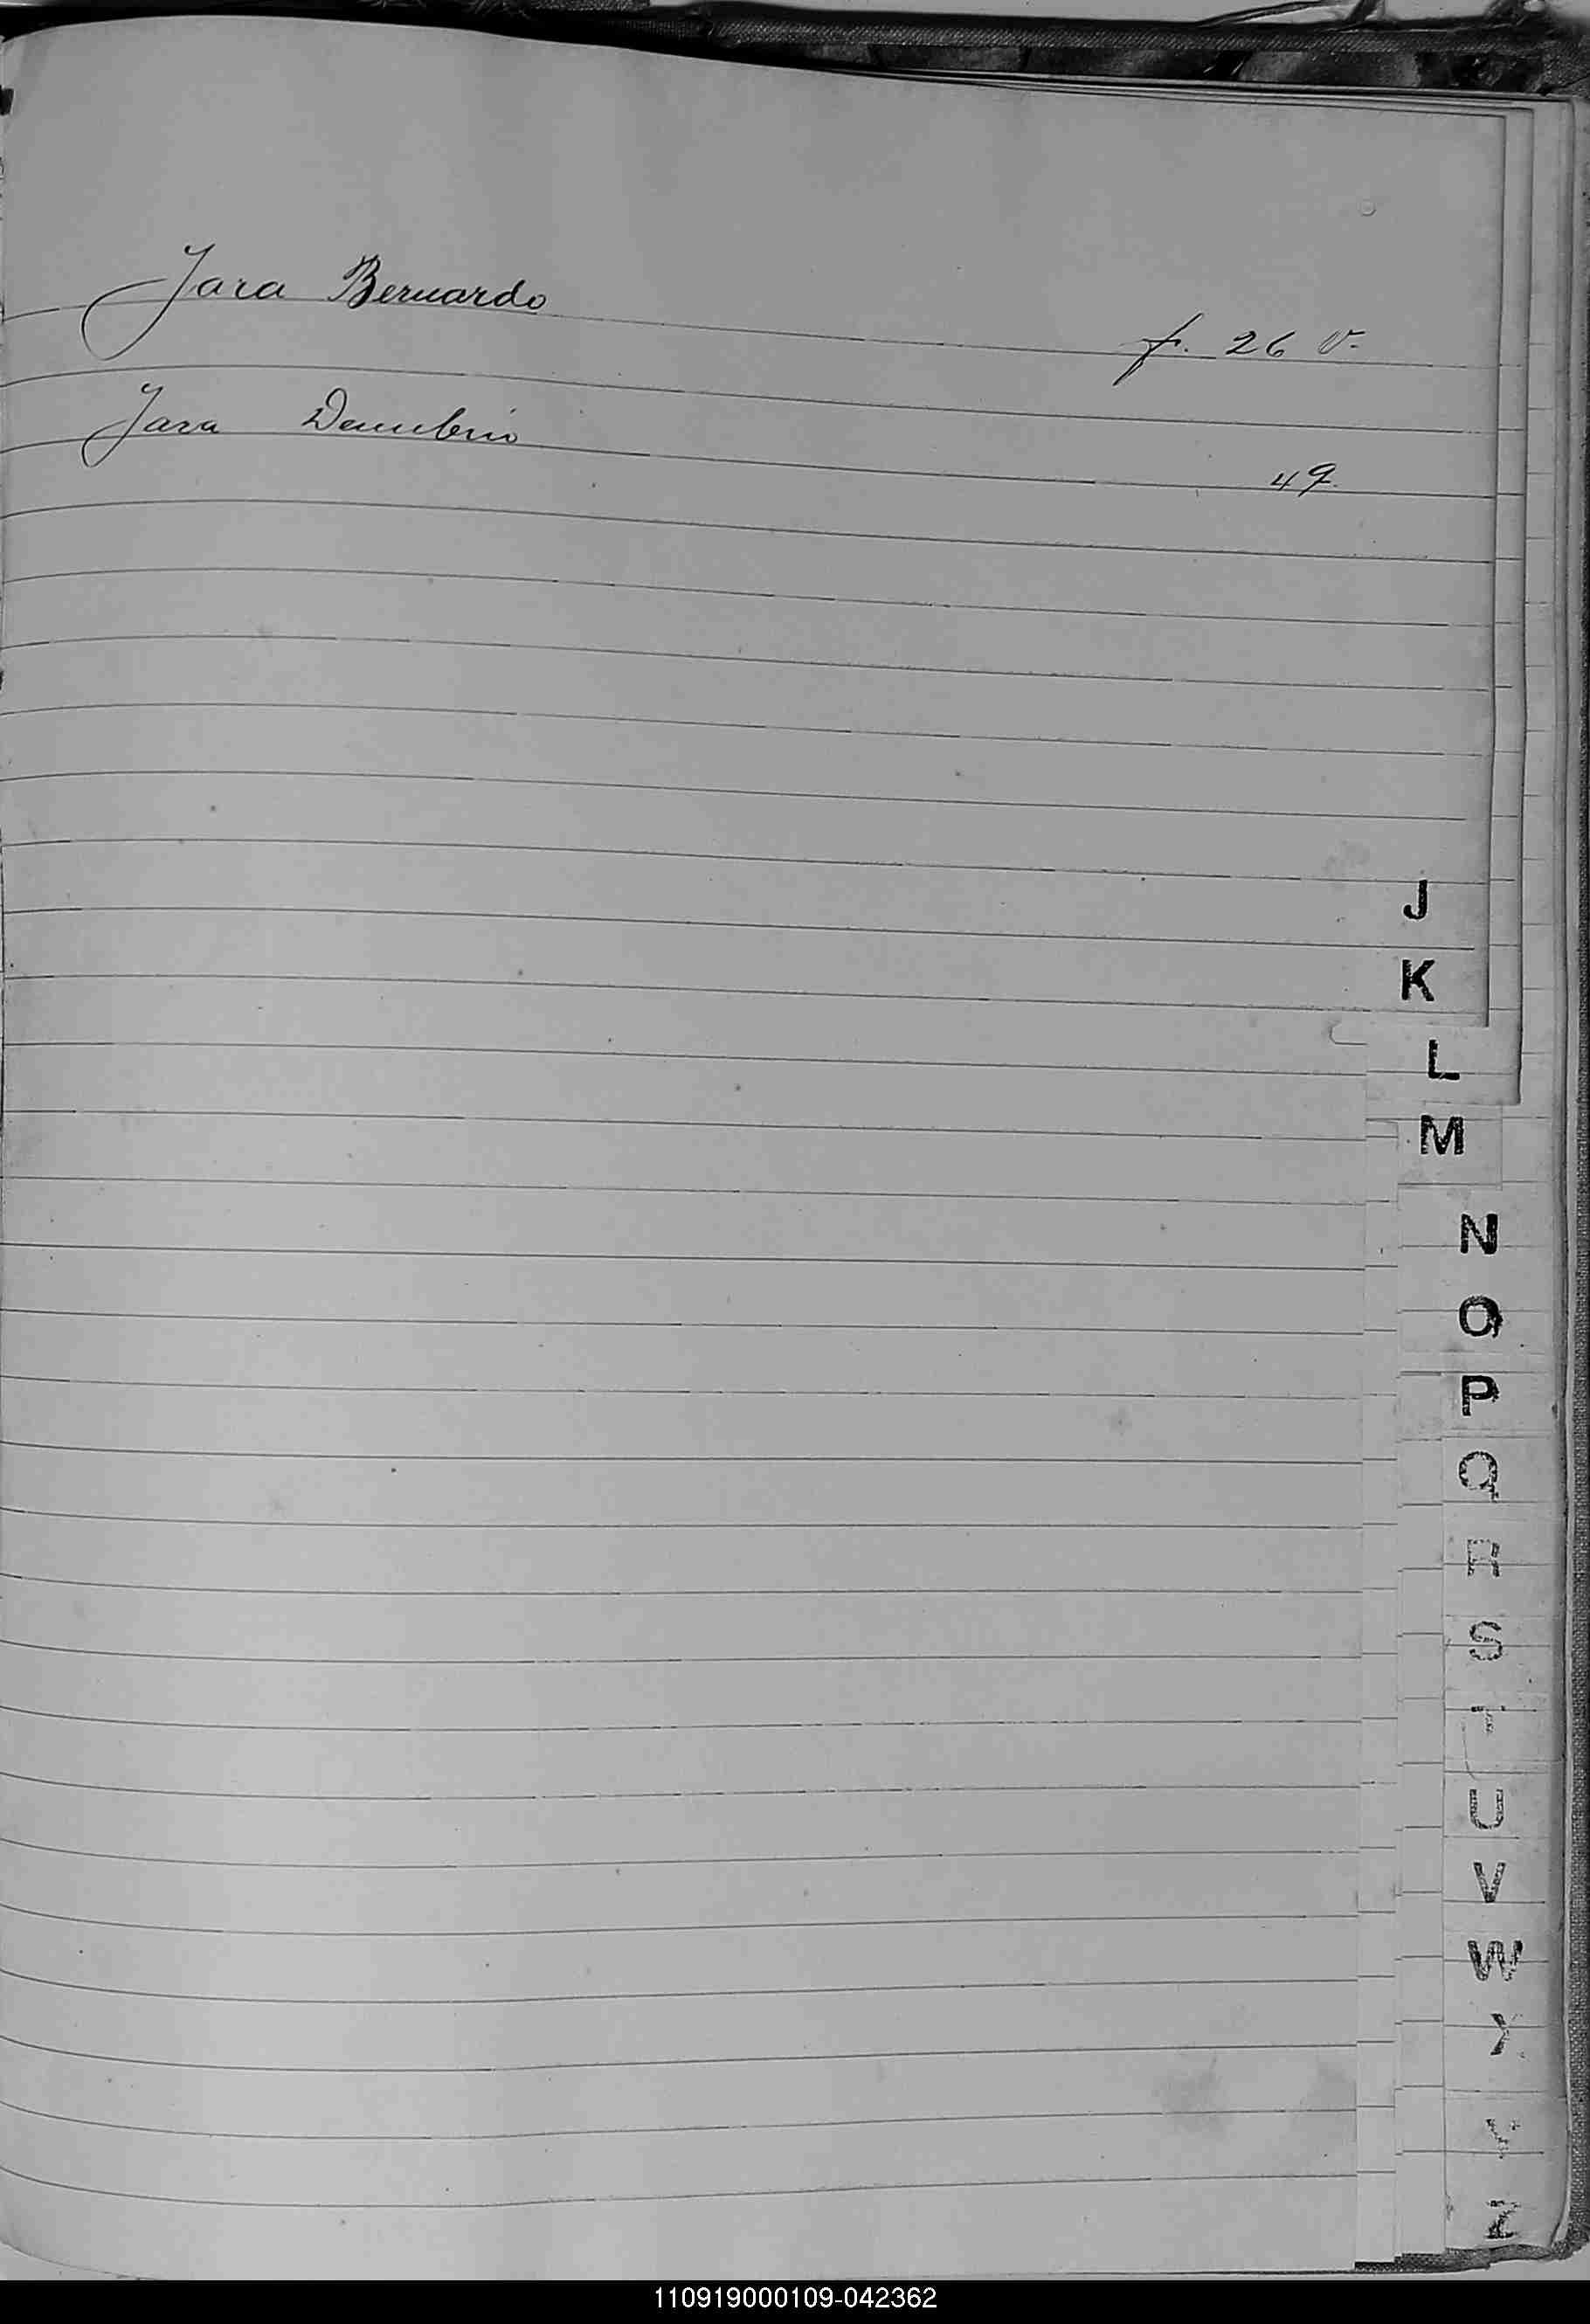 Jara Bernardo f. 26 v.
Jara 49.
J
K
L
M
N
O
P
Q
R
S
T
U
V
W
X
Y
Z
110919000109-042362